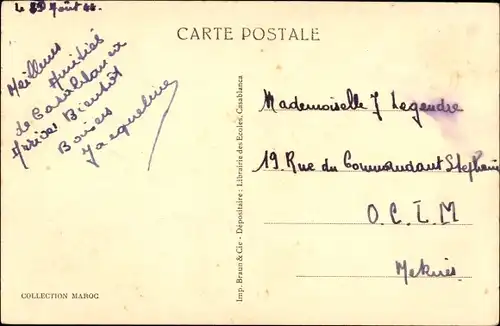 le 23 Août 44.
CARTE POSTALE
Meilleures
Amitiés
de Casablanca
Arrive Bientôt
Baisers
Jacqueline
Mademoiselle J Legendre
19. Rue du Commandant Stephani
O.C.I.M
Meknès
Imp. Braun & Cie - Dépositaire: Librairie des Ecoles, Casablanca
COLLECTION MAROC